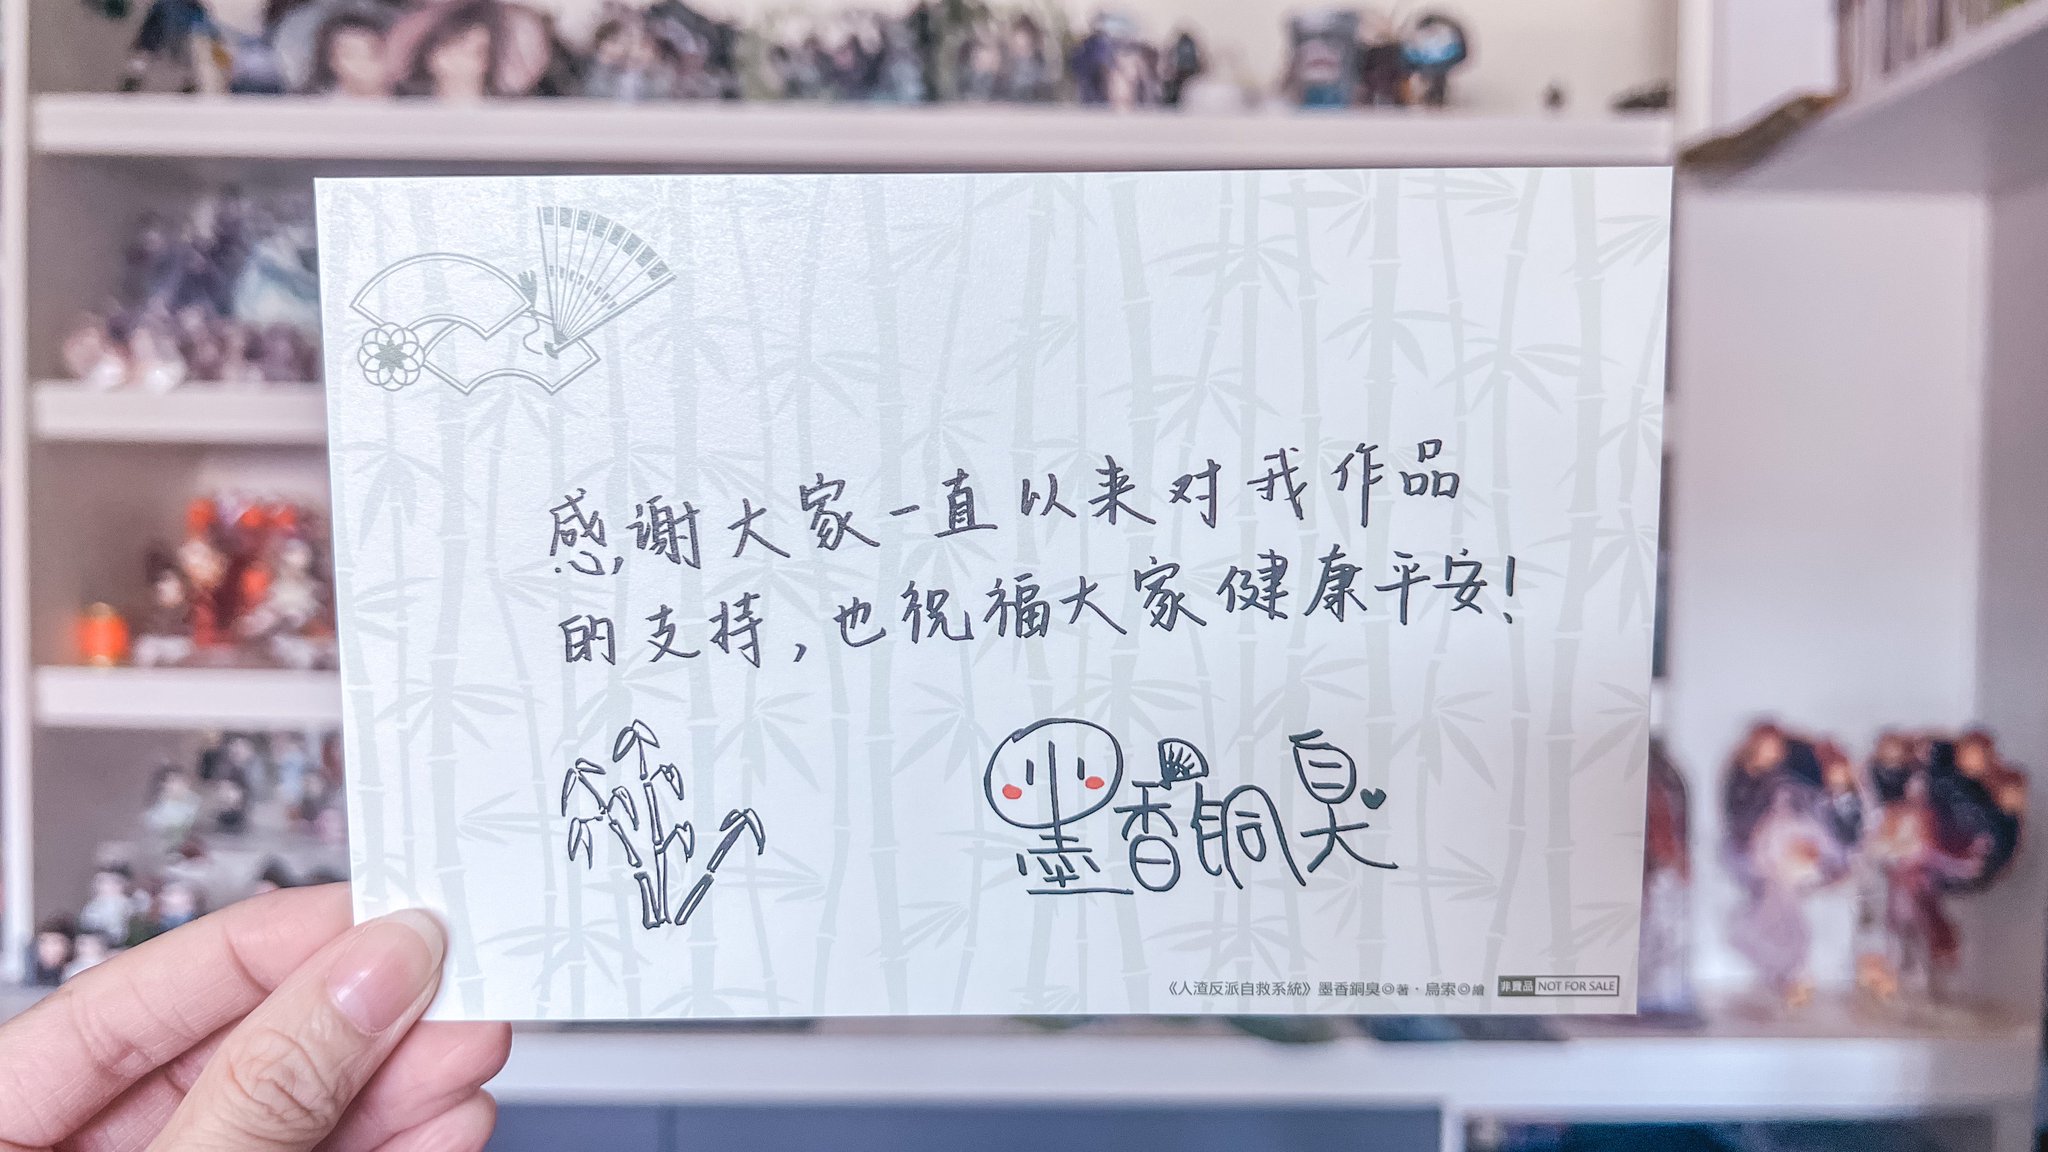 感谢大家一直以来对我作品
的支持,也祝福大家健康平安!
墨香铜臭
《人渣反派自救系統》墨香銅臭◎著・烏索◎繪 非賣品 NOT FOR SALE